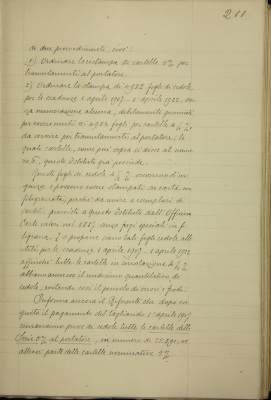 211
di due procedimenti, cioè:
1) Ordinare la ristampa di cartelle 3% per
tramutamenti al portatore.
2) Ordinare la stampa di 4982 fogli di cedole,
per le scadenze 1 aprile 1907 - 1 aprile 1922, sen-
za numerazione alcuna, debitamente
per essere muniti di 4982 fogli, per cartelle 4 ½ %
da servire per tramutamenti al portatore; le
quali cartelle, come più sopra si disse al nume-
ro 6°, questo Istituto già possiede.
Questi fogli di cedole 4 ½ % occorrono d'ur-
genza e possono essere stampati in carta non
filigranata, perchè da unire a esemplari di
cartelle provvisti a questo Istituto dall'Officina
Carte valori nel 1887, senza fogli speciali in fi-
ligrana. Si propone siano tali fogli cedole alle-
stiti per le scadenze 1 aprile 1907 - 1 aprile 1922
affinchè tutte le cartelle in circolazione 4 ½ %
abbiano ancora il medesimo quantitativo di
cedole, evitando così il pericolo di errori e frodi.
Informa ancora il Riferente che dopo ese-
guito il pagamento del tagliando 1° aprile 1907
rimarranno prive di cedole tutte le cartelle delle
Serie 3% al portatore, in numero di 25.291, ed
altresì parte delle cartelle nominative 3%